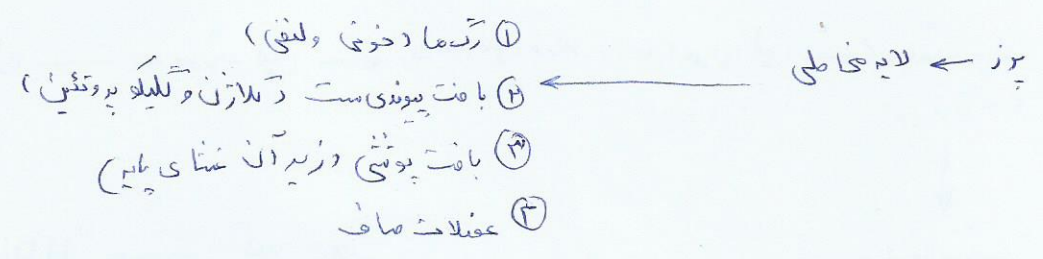 پرز ← لایه مخاطی ←
① رگ‌ها (خونی و لنفی)
② بافت پیوندی سست (کلاژن و گلیکو پروتئین)
③ بافت پوششی (زیر آن غشای پایه)
④ عضلات صاف